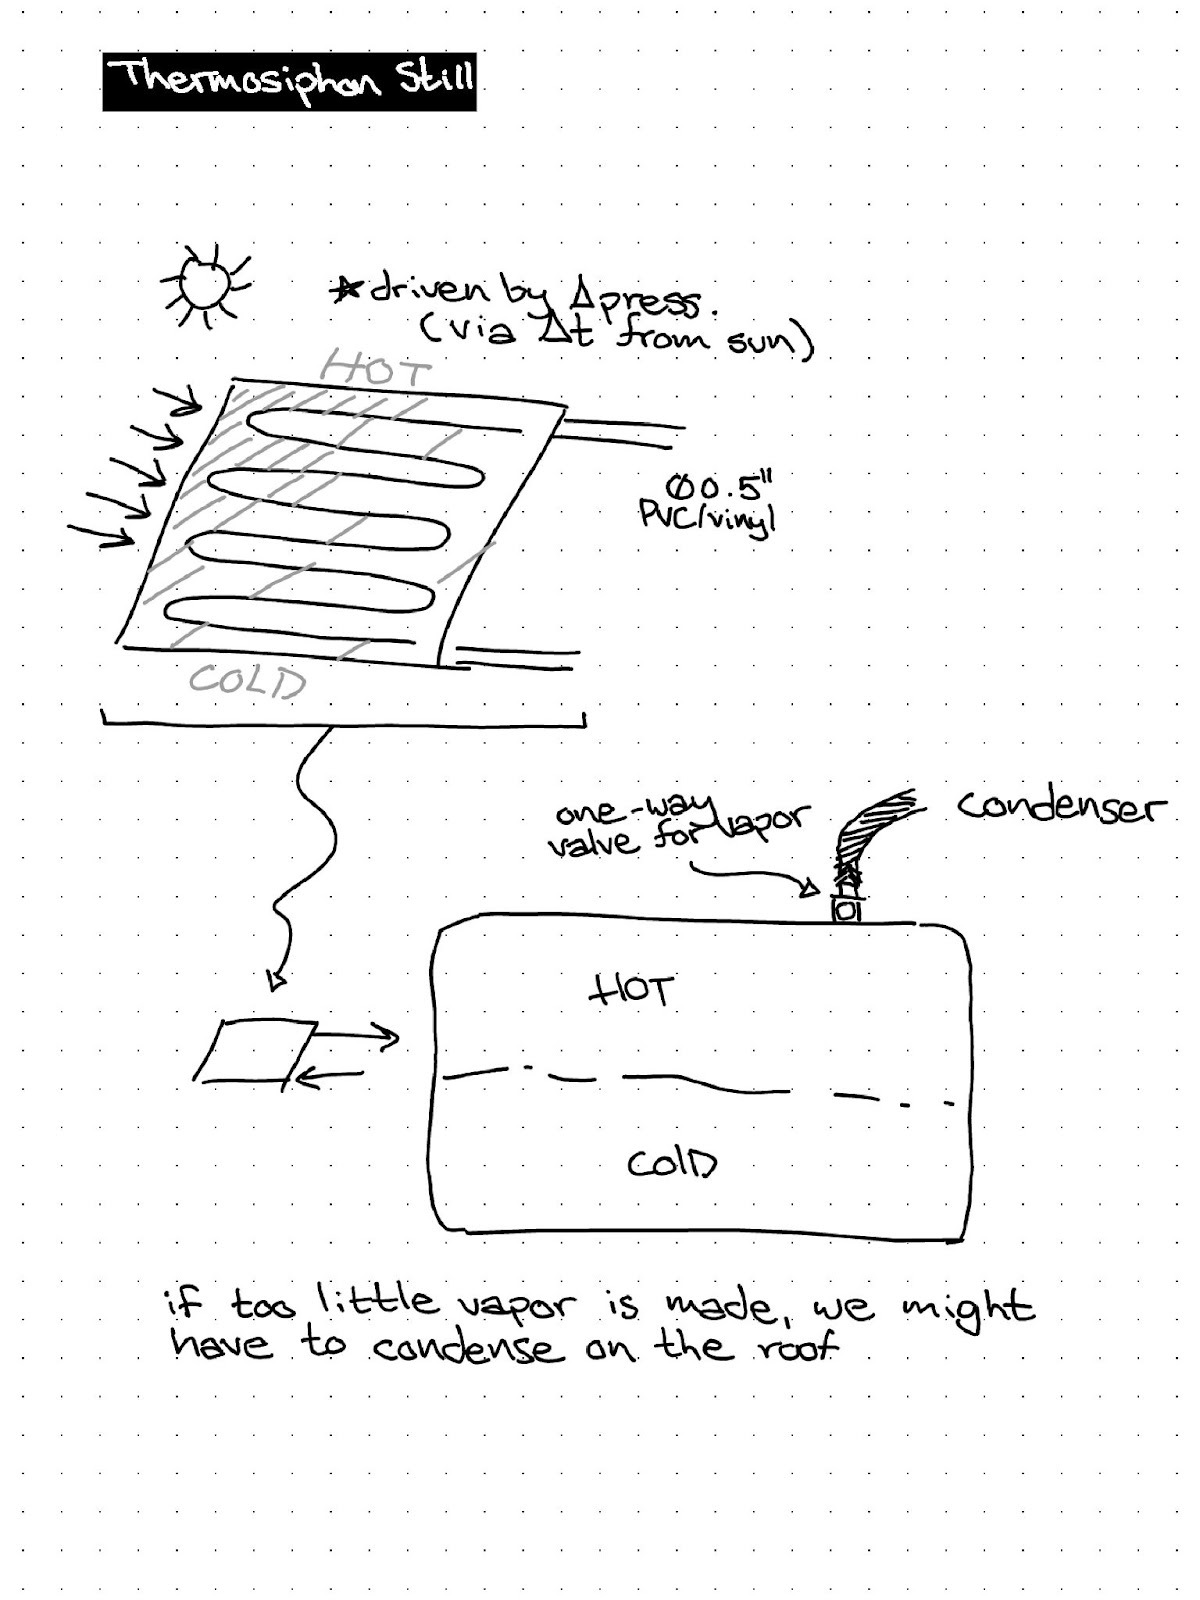 Thermosiphon Still
*driven by Δpress.
(via Δt from sun)
HOT
Ø0.5"
PVC/vinyl
COLD
one-way
valve for vapor
condenser
HOT
COlD
if too little vapor is made, we might
have to condense on the roof